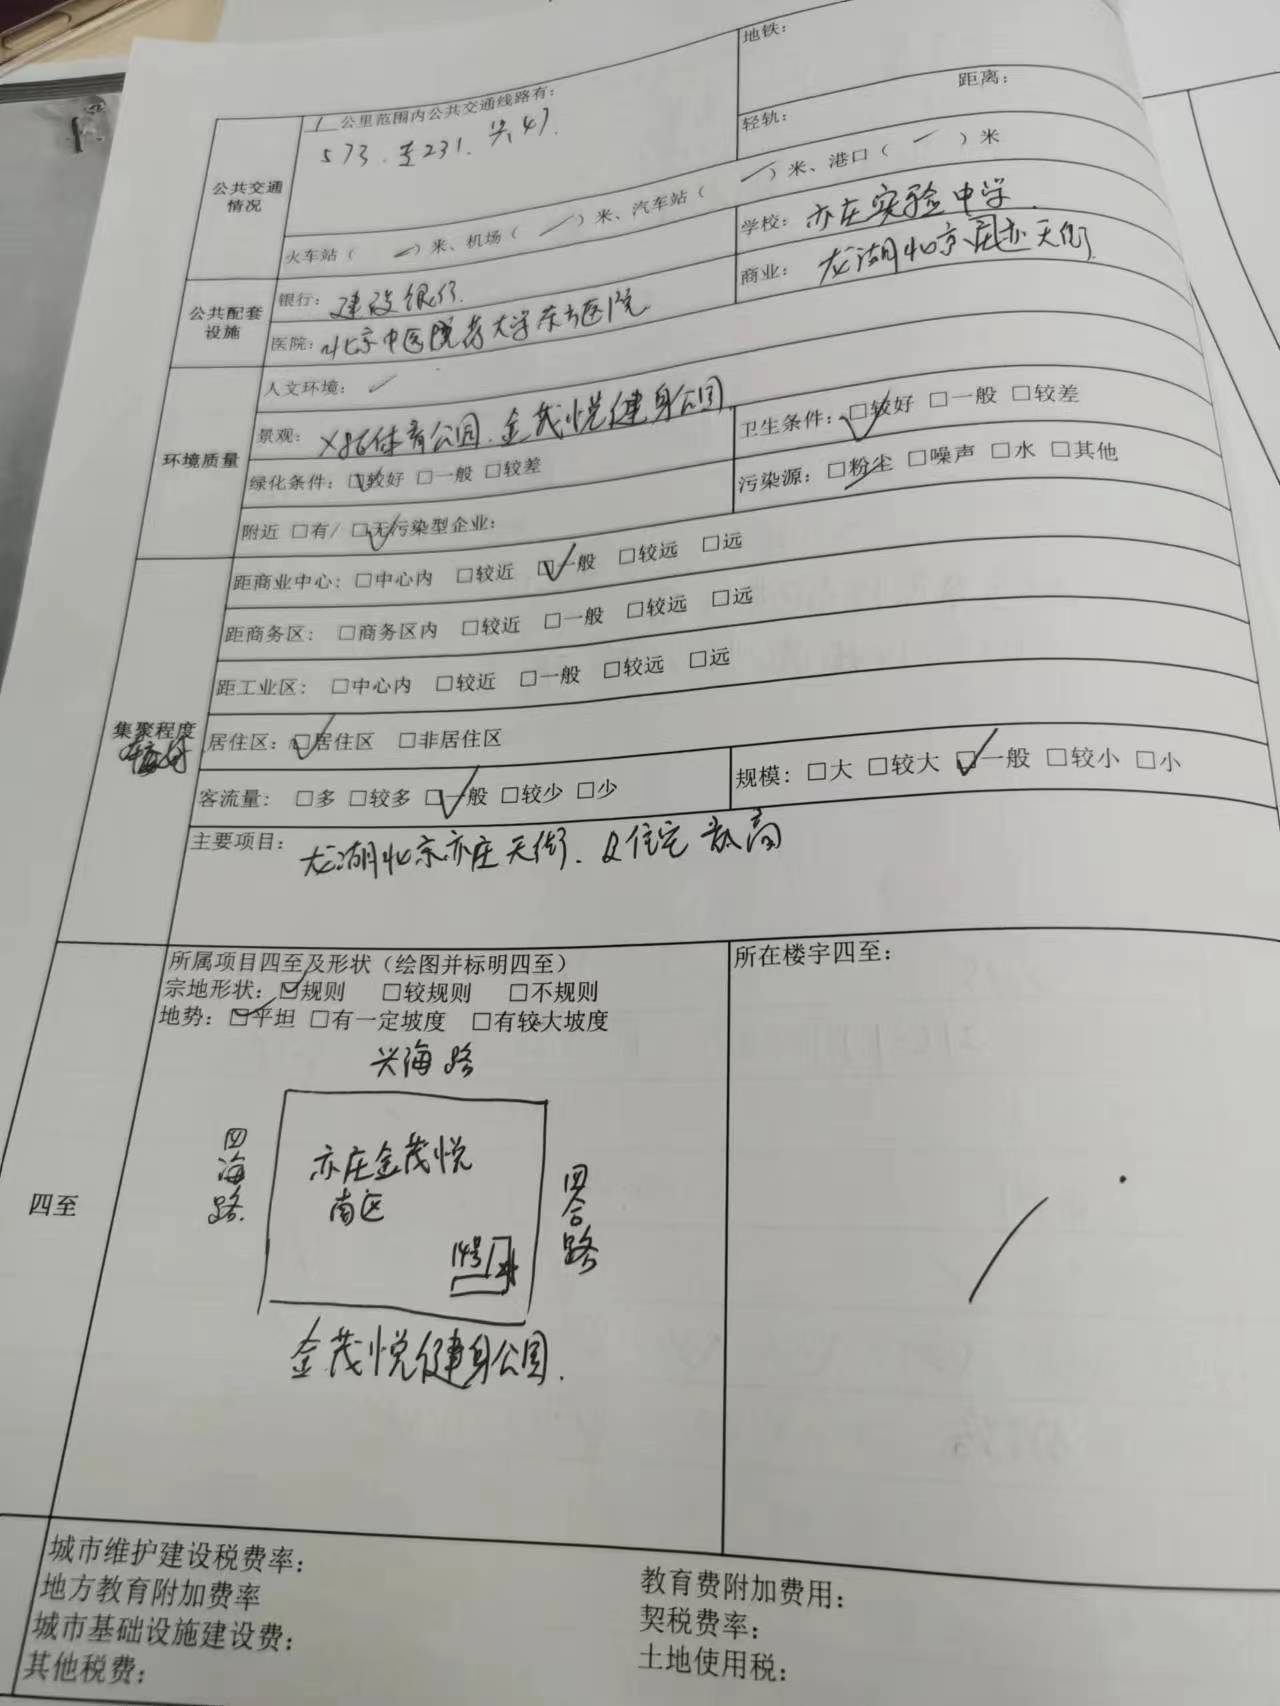 地铁：
距离：
1 公里范围内公共交通线路有：
573. 至231. 兴47.
轻轨：
公共交通情况
火车站（ — ）米、机场（ — ）米、汽车站（ — ）米、港口（ — ）米
公共配套设施
银行：建设银行
学校：亦庄实验中学.
医院：北京中医院药大学东方医院
商业：龙湖北京亦天街
环境质量
人文环境：✓
景观：体育公园.金茂悦健身公园
卫生条件：☑较好 □一般 □较差
绿化条件：☑较好 □一般 □较差
污染源：□粉尘 □噪声 □水 □其他
附近 □有/ ☑无污染型企业：
集聚程度
较好
距商业中心：□中心内 □较近 ☑一般 □较远 □远
距商务区：□商务区内 □较近 □一般 □较远 □远
距工业区：□中心内 □较近 □一般 □较远 □远
居住区：☑居住区 □非居住区
客流量：□多 □较多 ☑一般 □较少 □少
规模：□大 □较大 ☑一般 □较小 □小
主要项目：龙湖北京亦庄天街.及住宅底商
四至
所属项目四至及形状（绘图并标明四至）
宗地形状：☑规则 □较规则 □不规则
地势：☑平坦 □有一定坡度 □有较大坡度
所在楼宇四至：
兴海路
四海路
亦庄金茂悦
南区
14号
四合路
金茂悦健身公园.
城市维护建设税费率：
教育费附加费用：
地方教育附加费率
契税费率：
城市基础设施建设费：
土地使用税：
其他税费：